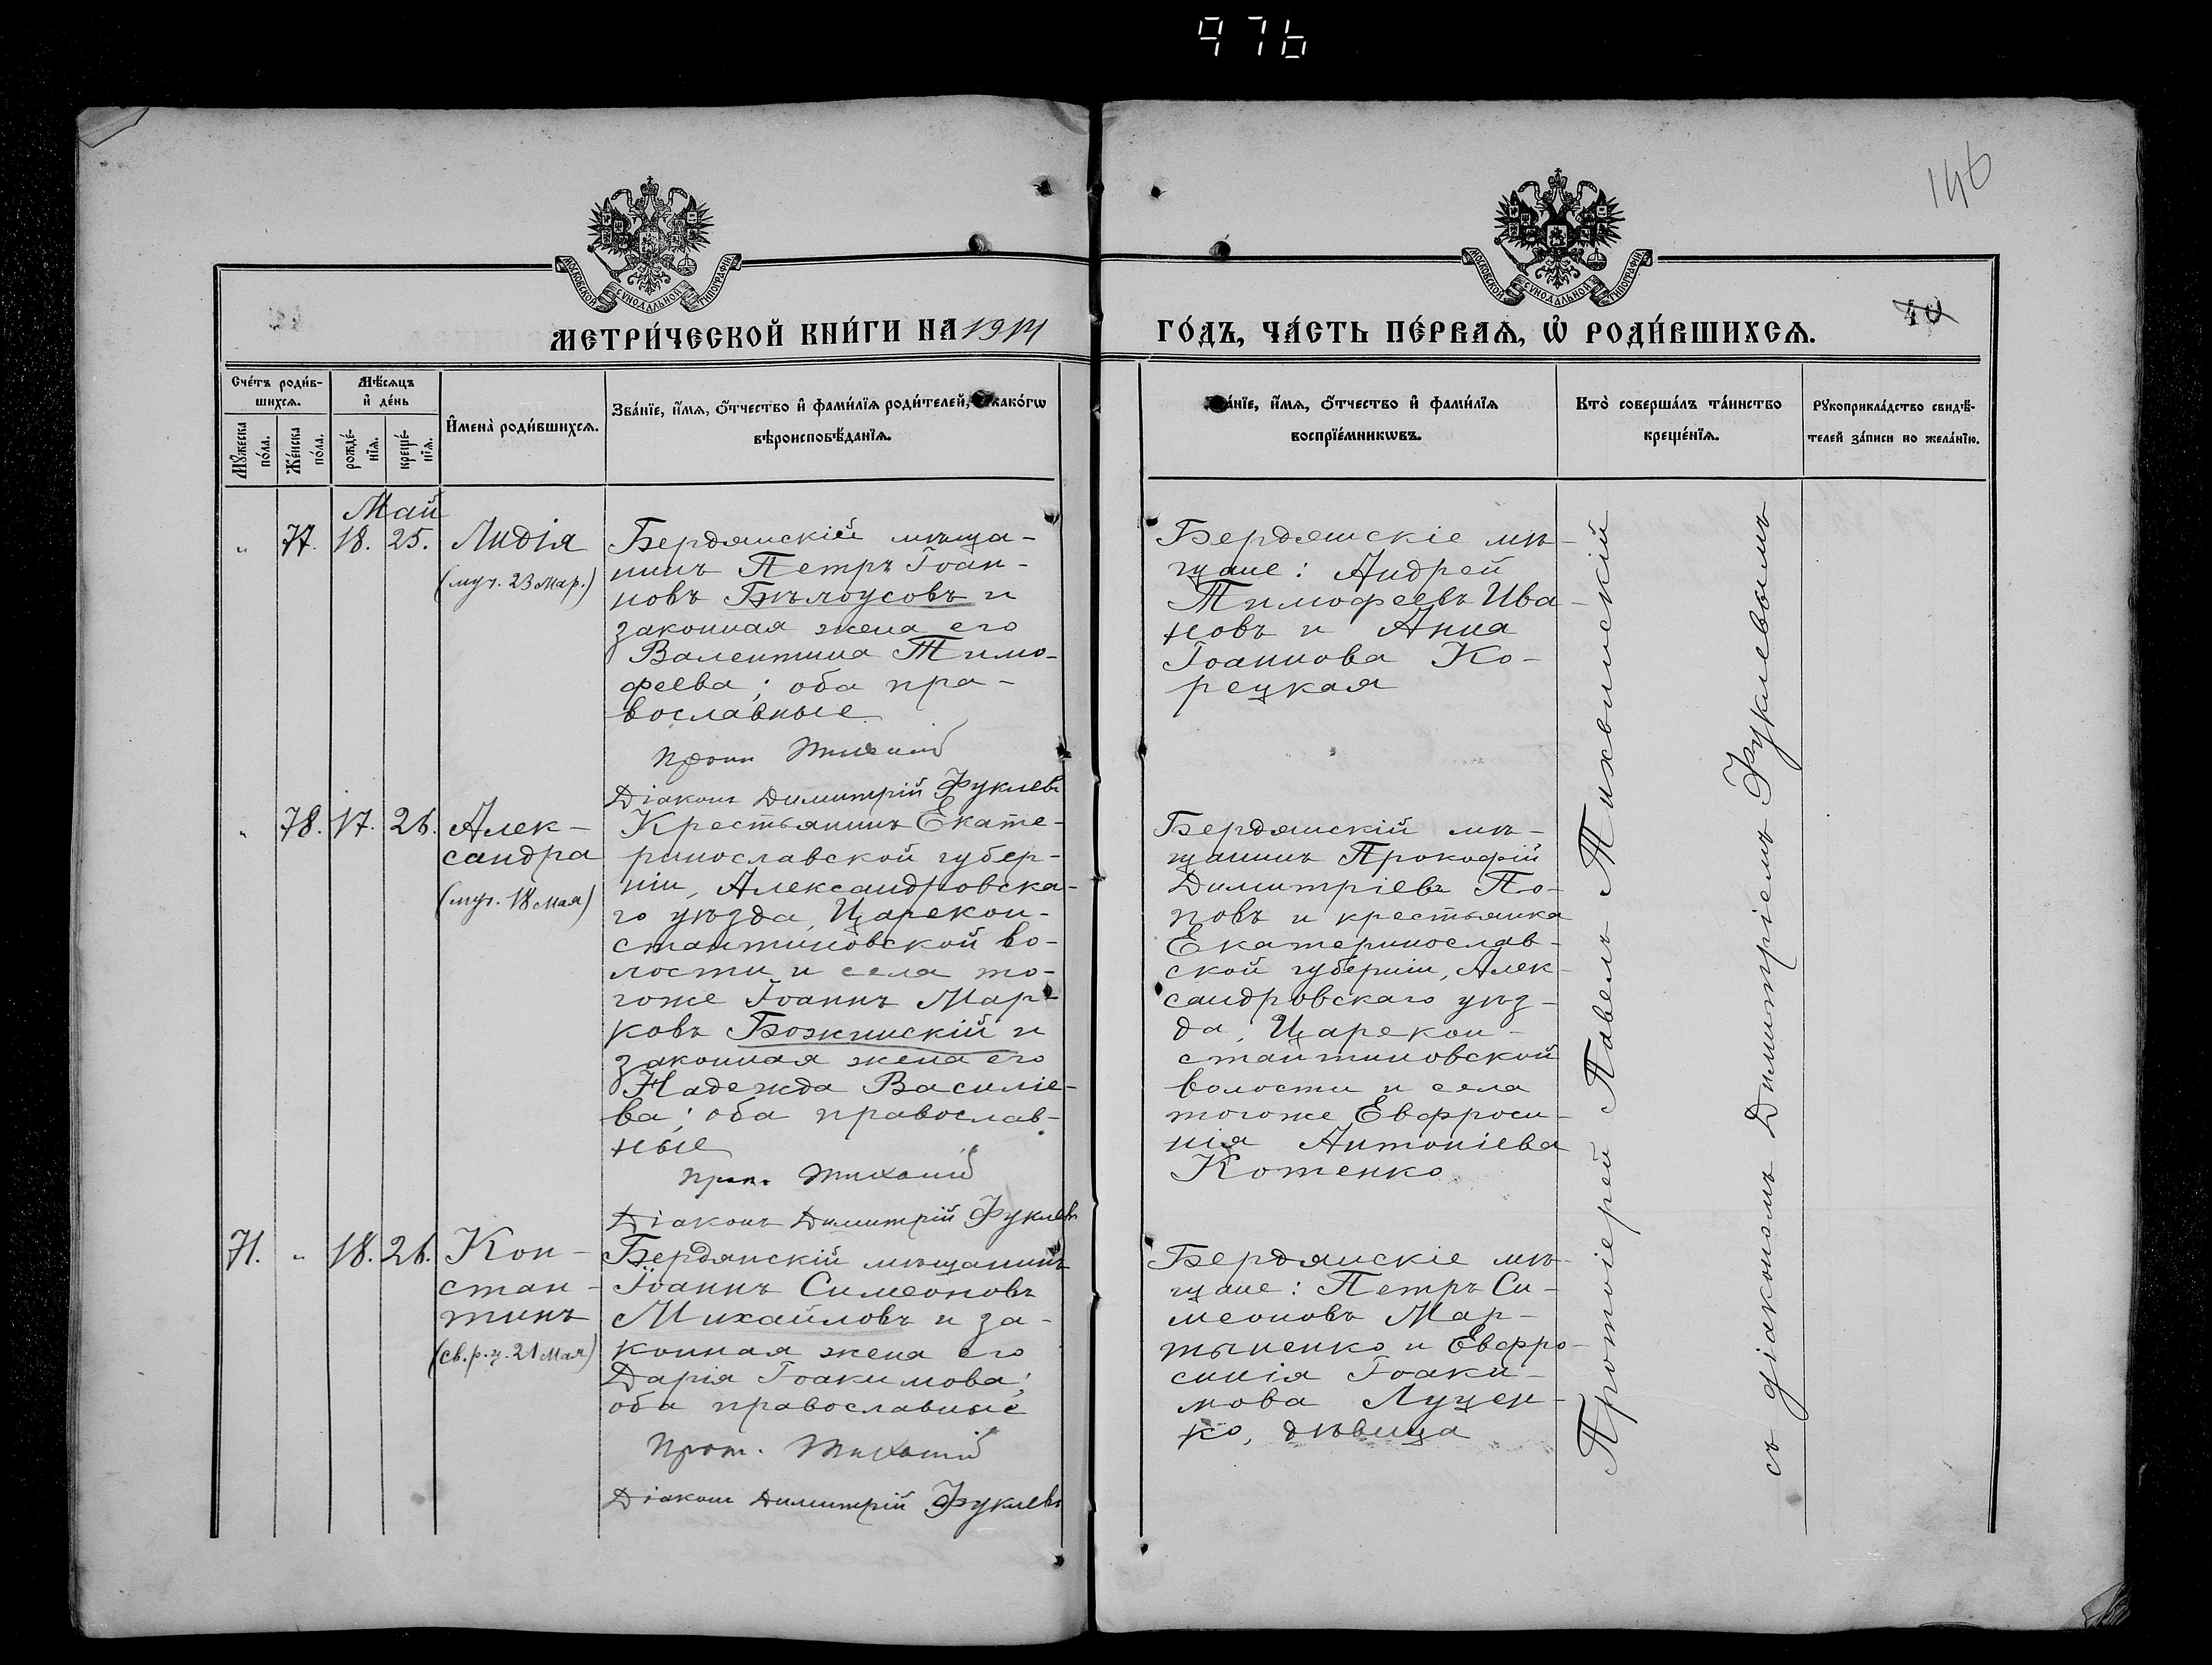 976
146
МОСКОВСКОЙ СѴНОДАЛЬНОЙ ТИПОГРАФІИ
МОСКОВСКОЙ СѴНОДАЛЬНОЙ ТИПОГРАФІИ
МЕТРИ́ЧЕСКОЙ КНИ́ГИ НА 1914
ГО́ДЪ, ЧА́СТЬ ПЕ́РВАѦ, Ѡ҆ РОДИ́ВШИХСѦ.
40
Сче́тъ роди́в-
шихсѧ.
Мѣ́сѧцъ
и҆ де́нь
Мꙋ́жеска
по́ла.
Же́нска
по́ла.
рожде́-
нїѧ.
креще́-
нїѧ.
И҆мена̀ роди́вшихсѧ.
Зва́нїе, и҆́мѧ, ѻ҆́тчество и҆ фами́лїѧ роди́телей, како́гѡ
вѣроисповѣ́данїѧ.
а́нїе, и҆́мѧ, ѻ҆́тчество и҆ фами́лїѧ
воспрїе́мникѡвъ.
Кто̀ соверша́лъ та́инство
креще́нїѧ.
Рꙋкоприкла́дство свидѣ́-
телей за́писи по жела́нїю.
Май
" 77. 18. 25.
Лидія
(муч. 23 Мар.)
Бердянскій мѣща-
нинъ Петръ Іоан-
новъ Бѣлоусовъ и
законная жена его
Валентина Тимо-
феева; оба пра-
вославные
Діаконъ Димитрій Фуклевъ
Бердянскіе мѣ-
щане: Андрей
Тимофеевъ Ива-
новъ и Анна
Іоаннова Ко-
рецкая
" 78. 17. 26.
Алек-
сандра
(муч. 18 Мая)
Крестьянинъ Екате-
ринославской губер-
ніи, Александровска-
го уѣзда, Царекон-
стантиновской во-
лости и села то-
гоже Іоаннъ Мар-
ковъ Божинскій и
законная жена его
Надежда Василіе-
ва; оба православ-
ные
Діаконъ Димитрій Фуклевъ
Бердянскій мѣ-
щанинъ Прокофій
Димитріевъ По-
повъ и крестьянка
Екатеринослав-
ской губерніи, Алек-
сандровскаго уѣз-
да, Царекон-
стантиновской
волости и села
тогоже Евфроси-
нія Антоніева
Котенко
71. " 18. 26.
Кон-
стан-
тинъ
(св. р. ц. 21 Мая)
Бердянскій мѣщанинъ
Іоаннъ Симеоновъ
Михайловъ и за-
конная жена его
Дарія Іоакимова;
оба православные
Прот.
Діаконъ Димитрій Фуклевъ
Бердянскіе мѣ-
щане: Петръ Си-
меоновъ Мар-
тыненко и Евфро-
синія Іоаки-
мова Луцен-
ко, дѣвица
Протоіерей Павелъ Тихвинскій
съ діакономъ Димитріемъ Фуклевымъ